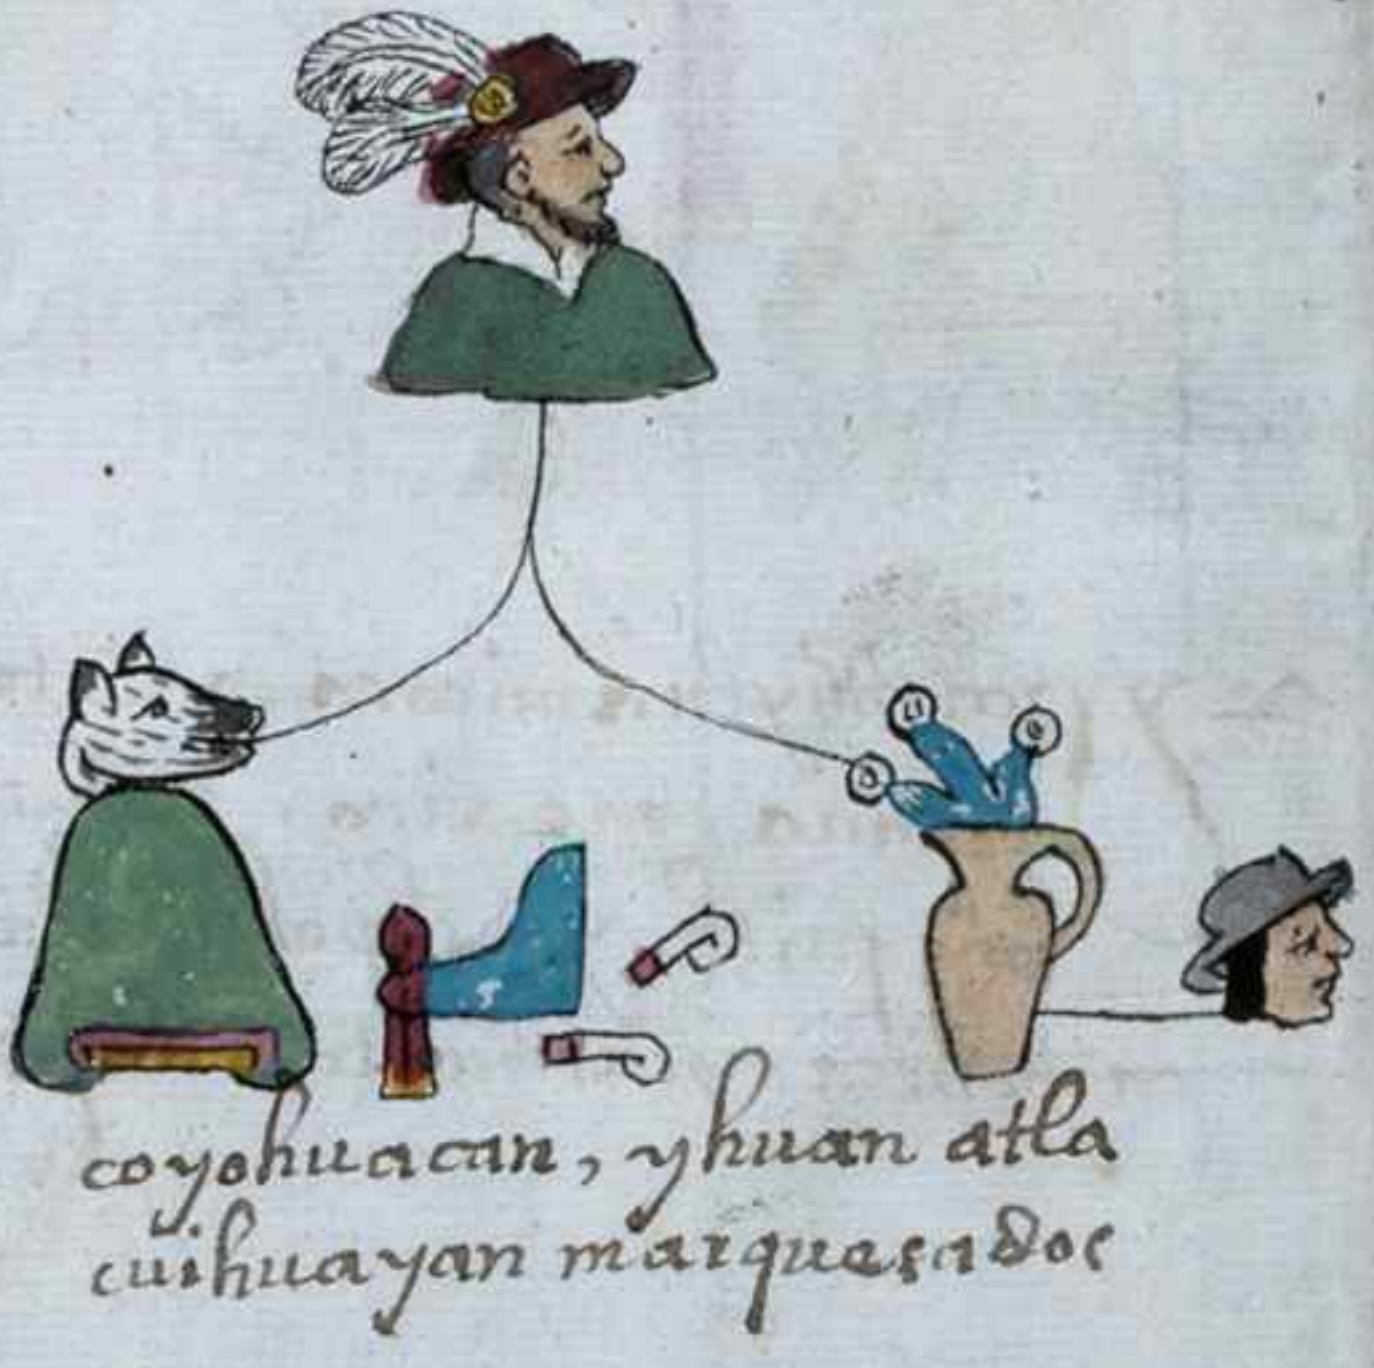 coyohuacan, yhuan atla
cuihuayan marquesados